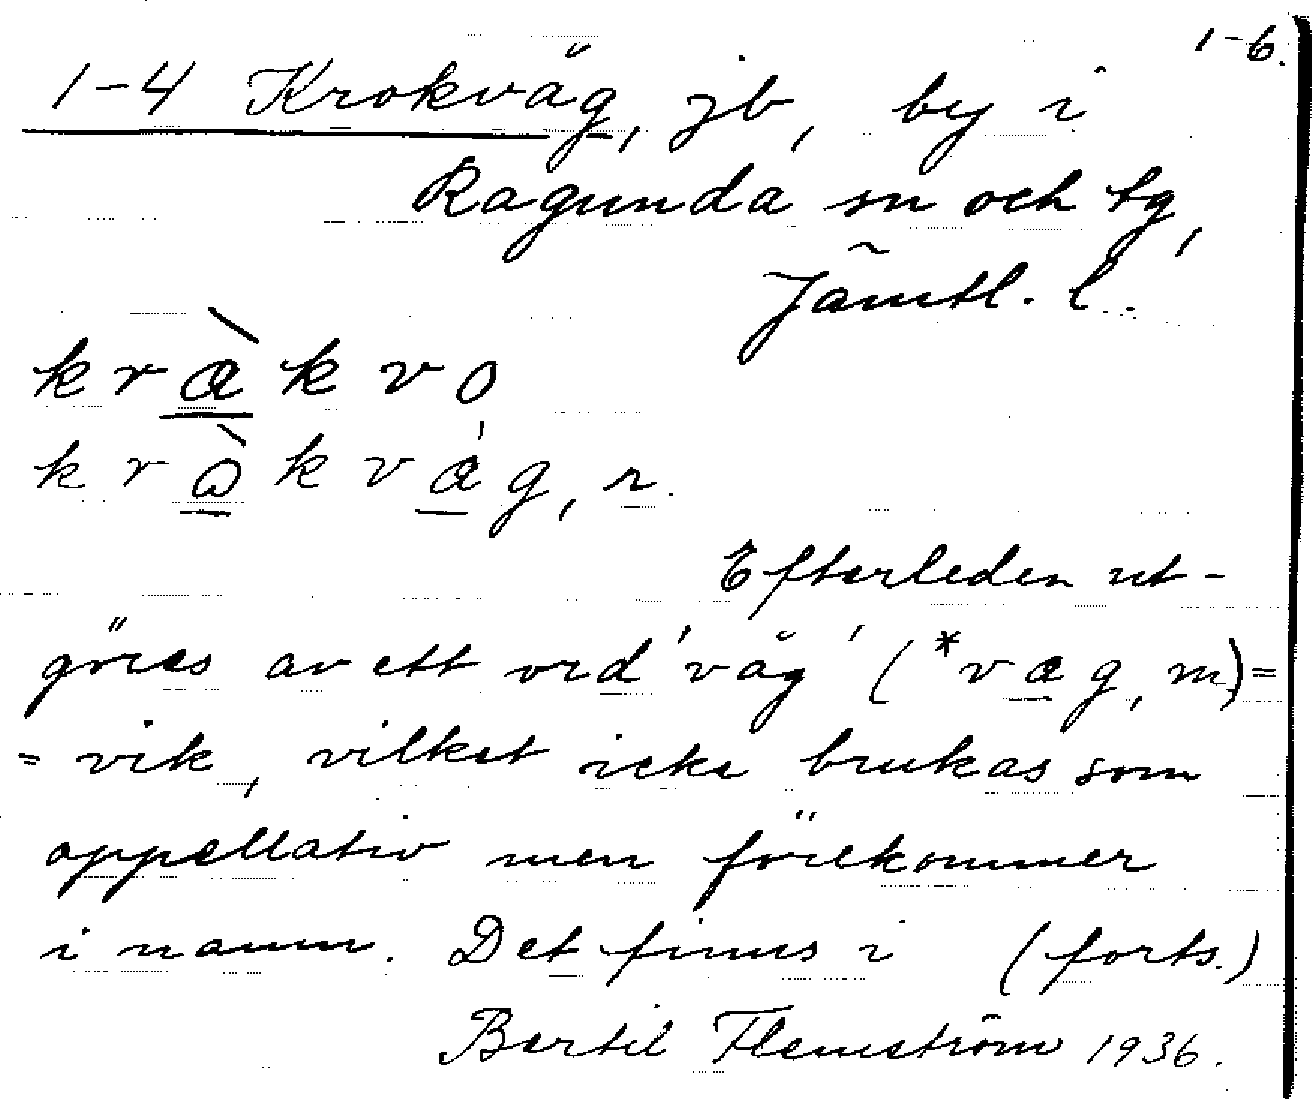 1-6.
1-4 Krokvåg, jb, by i
Ragunda sn och tg,
Jämtl. l.
kræ̀kvo
krὼkvǽg, r.
Efterleden ut-
göres av ett ord 'våg' (*væg, m) =
= vik, vilket icke brukas som
appellativ men förekommer
i namn. Det finns i (forts.)
Bertil Flemström 1936.